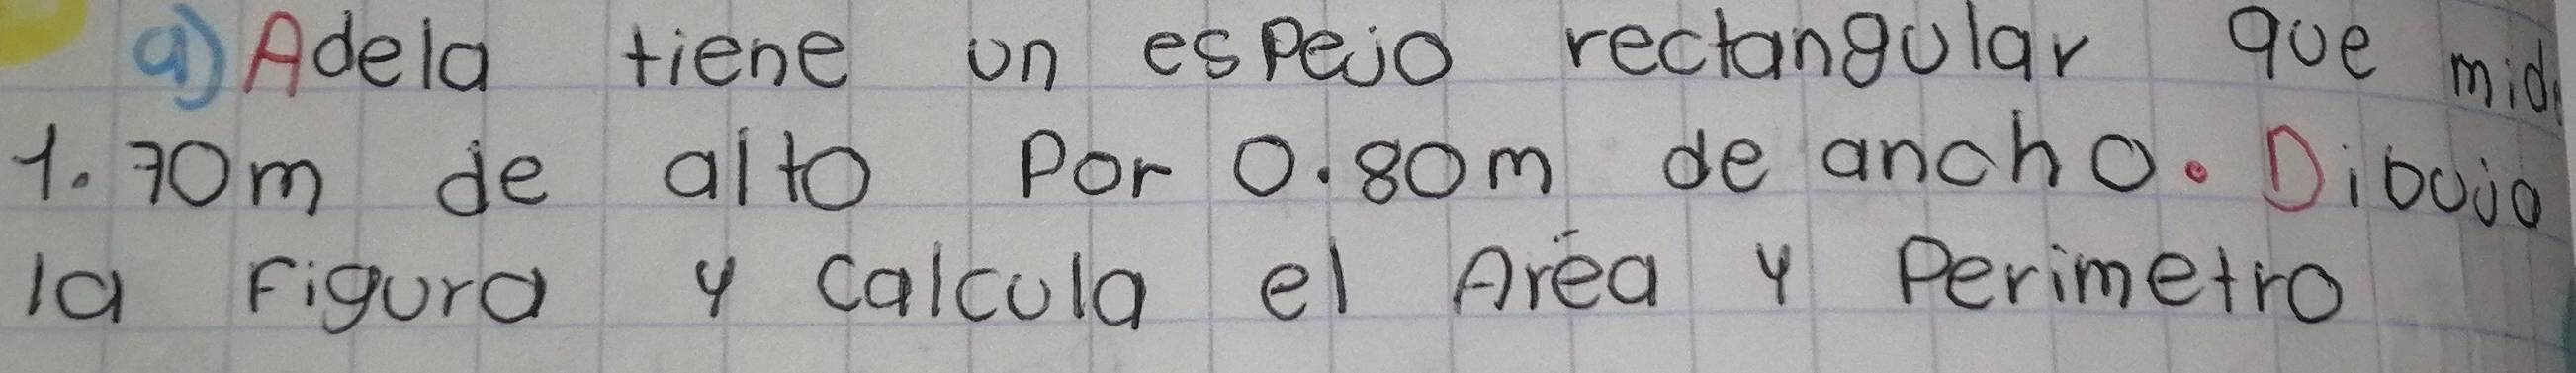 a) Adela tiene un espejo rectangular que mide
1.70m de alto por 0.80m de ancho. Dibuja
la Figura y calcula el Aréa y Perimetro